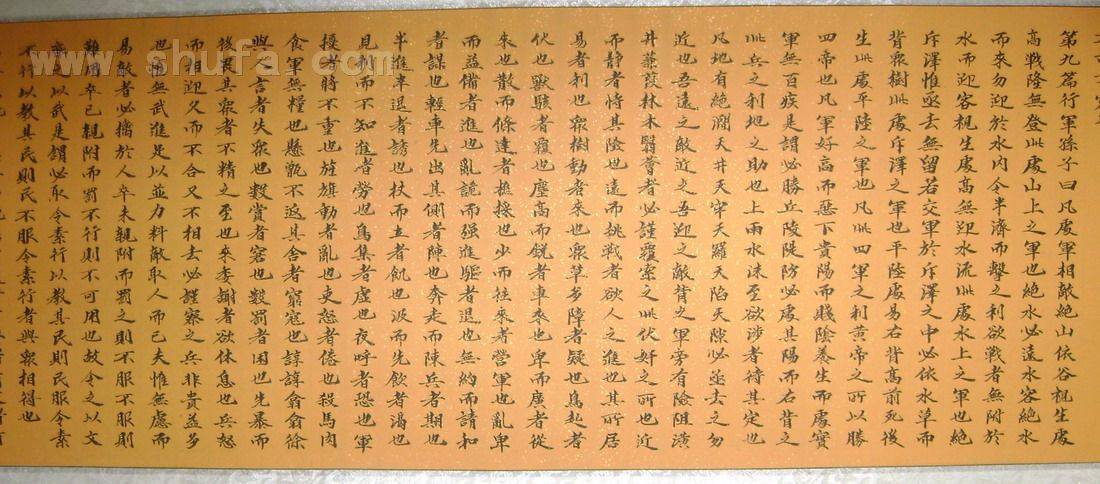 第九篇行軍孫子曰凡處軍相敵絕山依谷視生處
高戰隆無登此處山上之軍也絕水必遠水客絕水
而來勿迎於水內令半濟而擊之利欲戰者無附於
水而迎客視生處高無迎水流此處水上之軍也絕
斥澤惟亟去無留若交軍於斥澤之中必依水草而
背眾樹此處斥澤之軍也平陸處易右背高前死後
生此處平陸之軍也凡此四軍之利黃帝之所以勝
四帝也凡軍好高而惡下貴陽而賤陰養生而處實
軍無百疾是謂必勝丘陵隄防必處其陽而右背之
此兵之利地之助也上雨水沫至欲涉者待其定也
凡地有絕澗天井天牢天羅天陷天隙必亟去之勿
近也吾遠之敵近之吾迎之敵背之軍旁有險阻潢
井蒹葭林木翳薈者必謹覆索之此伏奸之所也近
而靜者恃其險也遠而挑戰者欲人之進也其所居
易者利也眾樹動者來也眾草多障者疑也鳥起者
伏也獸駭者覆也塵高而銳者車來也卑而廣者徒
來也散而條達者樵採也少而往來者營軍也辭卑
而益備者進也辭詭而强進驅者退也無約而請和
者謀也輕車先出其側者陳也奔走而陳兵者期也
半進半退者誘也杖而立者飢也汲而先飲者渴也
見利而不知進者勞也鳥集者虛也夜呼者恐也軍
擾者將不重也旌旗動者亂也吏怒者倦也殺馬肉
食軍無糧也懸缻不返其舍者窮寇也諄諄翕翕徐
與人言者失眾也數賞者窘也數罰者困也先暴而
後畏其眾者不精之至也來委謝者欲休息也兵怒
而相迎久而不合又不相去必謹察之兵非貴益多
也惟無武進足以並力料敵取人而已夫惟無慮而
易敵者必擒於人卒未親附而罰之則不服不服則
難用卒已親附而罰不行則不可用也故令之以文
齊之以武是謂必取令素行以教其民則民服令素
不行以教其民則民不服令素行者與眾相得也
www.shufa.com